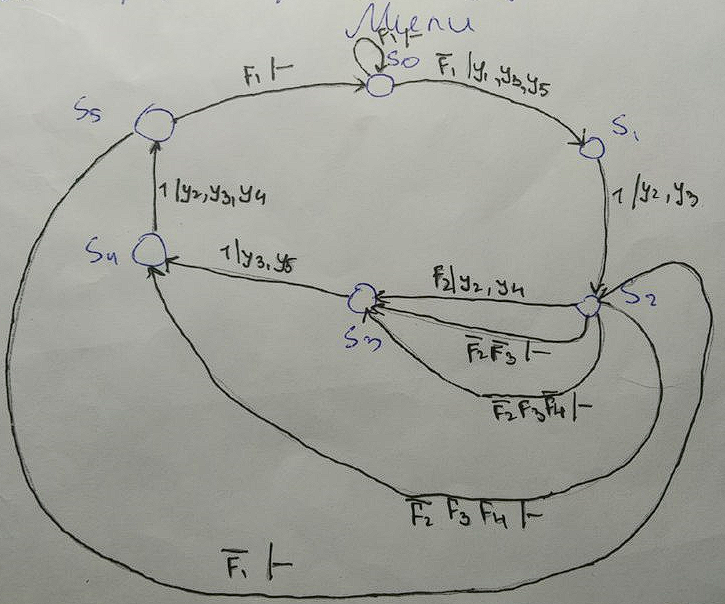 Мили
F₁|-
S₀
F̅₁|y₁,y₃,y₅
F₁|-
S₅
S₁
1|y₂,y₃,y₄
1|y₂,y₃
S₄
1|y₃,y₅
F₂|y₂,y₄
S₂
S₃
F̅₂F̅₃|-
F̅₂F₃F̅₄|-
F̅₂ F₃ F₄|-
F̅₁|-